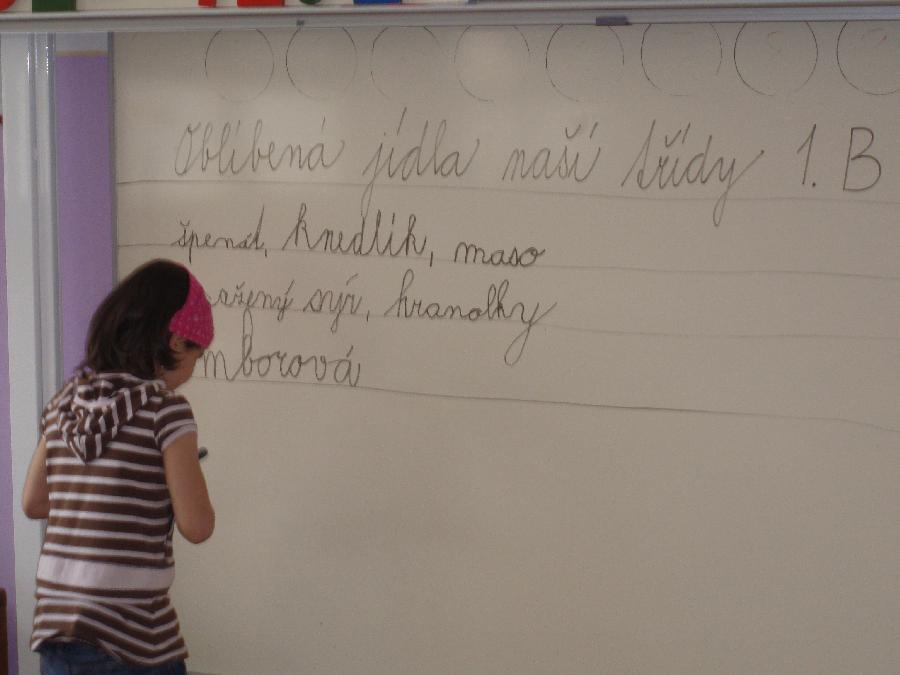 Oblíbená jídla naší třídy 1. B
špenát, knedlík, maso
ažený sýr, hranolky
mborová